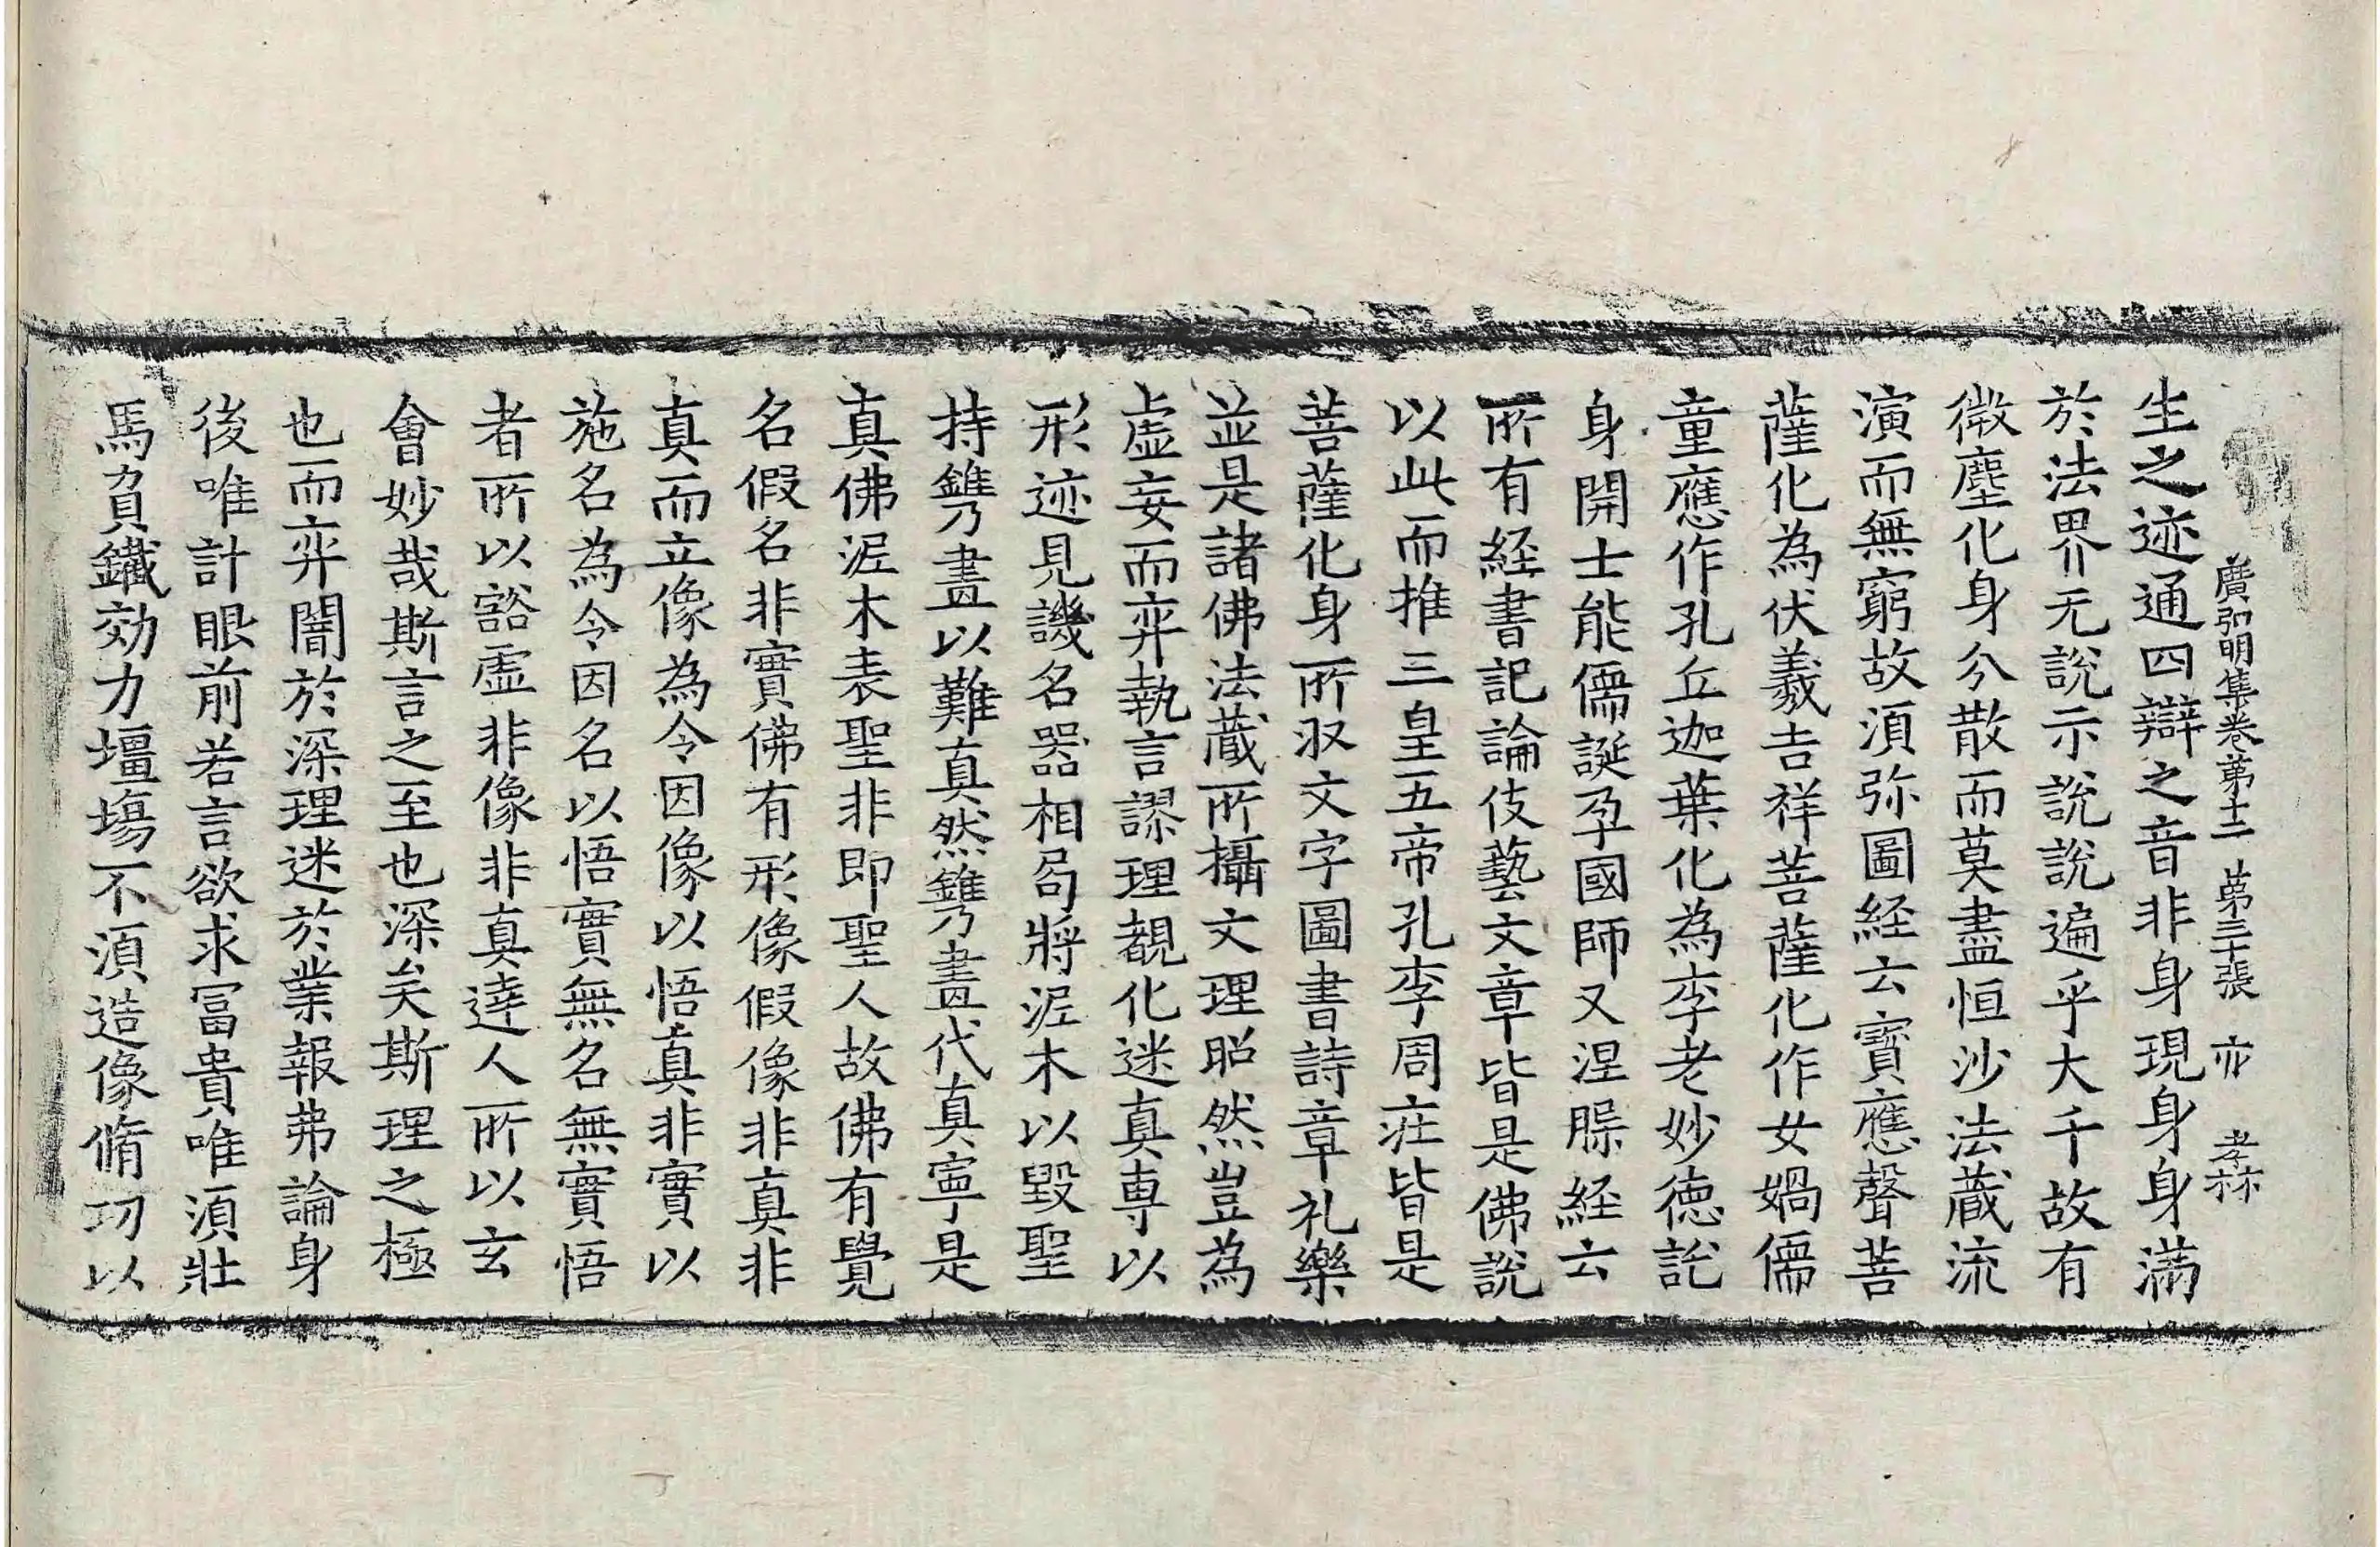 廣弘明集卷第十二 第三十張 亦 孝林
生之迹通四辯之音非身現身身滿
於法界无說示說說遍乎大千故有
微塵化身分散而莫盡恒沙法藏流
演而無窮故須弥圖經云寶應聲菩
薩化為伏羲吉祥菩薩化作女媧儒
童應作孔丘迦葉化為李老妙德託
身開士能儒誕孕國師又涅槃經云
所有經書記論伎藝文章皆是佛說
以此而推三皇五帝孔李周莊皆是
菩薩化身所収文字圖書詩章礼樂
並是諸佛法藏所攝文理昭然豈為
虛妄而弃執言謬理覩化迷真專以
形迹見譏名器相局將泥木以毀聖
持鐫畫以難真然鐫畫代真寧是
真佛泥木表聖非即聖人故佛有覺
名假名非實佛有形像假像非真非
真而立像為令因像以悟真非實以
施名為令因名以悟實無名無實悟
者所以谿虛非像非真達人所以玄
會妙哉斯言之至也深矣斯理之極
也而弈闇於深理迷於業報弗論身
後唯計眼前若言欲求冨貴唯須壯
馬負鐵効力壃塲不須造像脩功以